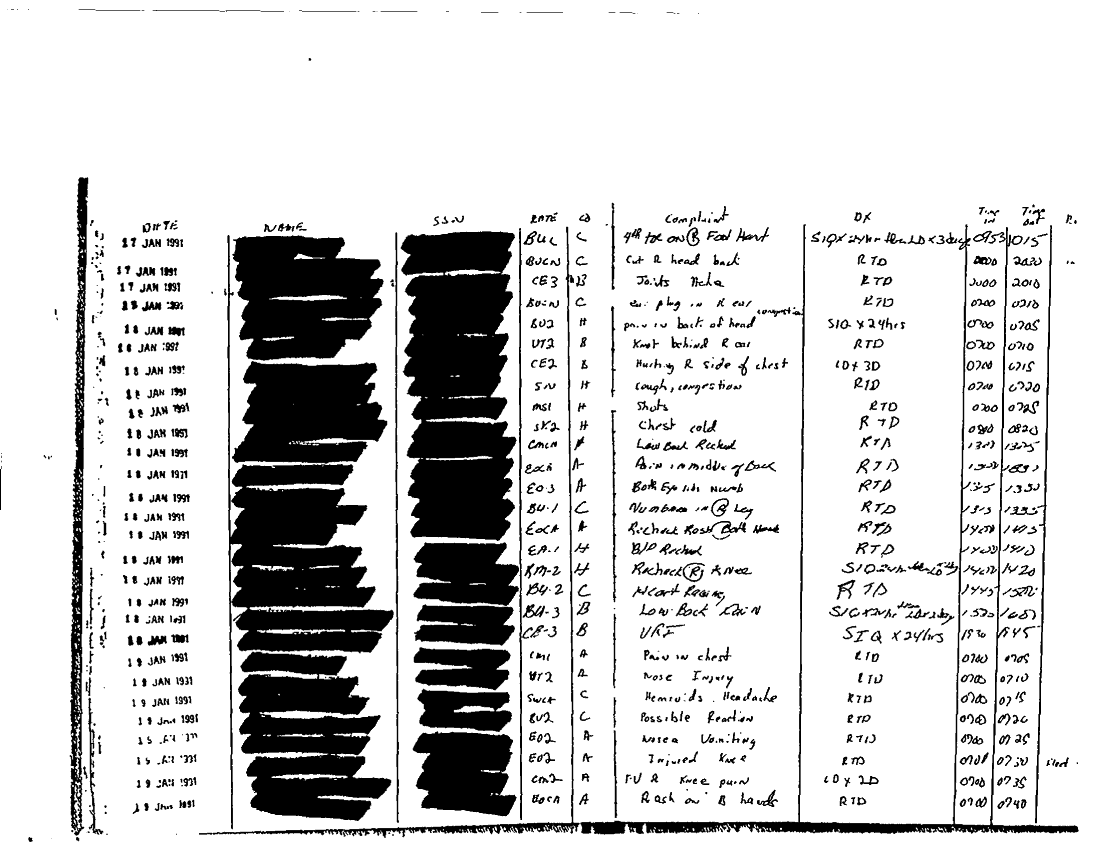 DATE NAME SSN RATE CO Complaint DX Time in Time out
17 JAN 1991 BUC C 4th toe on R Foot Hurt SIQ X 24hr then LD x 3days 0953 1015
17 JAN 1991 BUCN C Cut R head back RTD 2000 2020
17 JAN 1991 CE3 B Joints Ache RTD 2000 2010
JAN 1991 BUCN C ear plug in R ear RTD 0700 0710
18 JAN 1991 BU2 H pain in back of head congestion SIQ X 24hrs 0700 0705
18 JAN 1991 UT2 B Knot behind R ear RTD 0700 0710
18 JAN 1991 CE2 B Hurting R side of chest LD x 3D 0700 0715
18 JAN 1991 SN H cough, congestion RTD 0700 0720
18 JAN 1991 MS1 H Shots RTD 0700 0725
18 JAN 1991 SK2 H Chest cold RTD 0820
18 JAN 1991 CMCN Low Back Recheck RTD 1325
18 JAN 1991 EOCA A Pain in middle of Back RTD
18 JAN 1991 EO-3 A Both Eye lids Numb RTD 1315 1330
18 JAN 1991 BU-1 C Numbness in R Leg RTD 1315 1335
18 JAN 1991 EOCA A Recheck Rash Both Hands RTD 1400 1415
18 JAN 1991 EA-1 H B/P Recheck RTD 1400 1410
18 JAN 1991 RM-2 H Recheck R Knee SIQ 1400 1420
18 JAN 1991 BU-2 C Heart Racing RTD 1445 1500
18 JAN 1991 BU-3 B Low Back Pain SIQ x 24hr then
18 JAN 1991 CE-3 B URI SIQ X 24hrs 1930 1945
19 JAN 1991 CM1 A Pain in chest RTD 0700 0705
19 JAN 1991 UT2 A Nose Injury RTD 0700 0710
19 JAN 1991 SWCA C Hemroids. Headache RTD 0700 0715
19 JAN 1991 BU2 C Possible Reaction RTD 0700 0720
EO2 A Nosea Vomiting RTD 0700 0725
EO2 A Injured Knee RTD 0700 0730
19 JAN 1991 CM2 A FU R Knee pain LD x 2D 0700 0735
19 JAN 1991 EOCA A Rash on B hands RTD 0700 0740